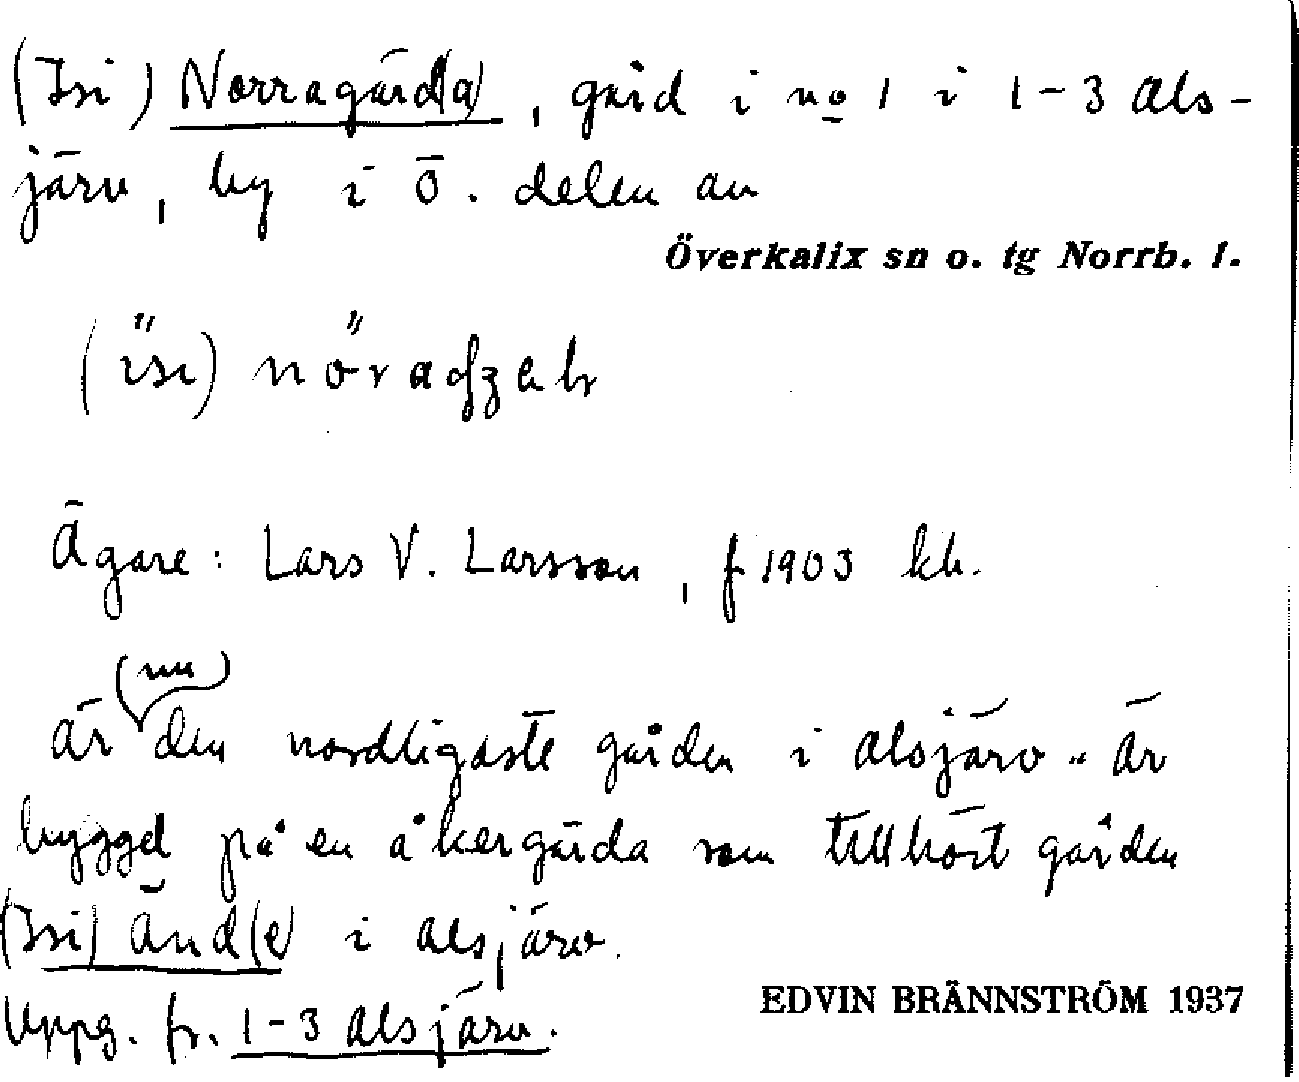 (Isi) Norragärd(a), gård i no 1 i 1-3 Als-
järv, by i Ö. delen av
Överkalix sn o. tg Norrb. l.
Ägare: Lars V. Larsson, f 1903 kb.
(nu)
är den nordligaste gården i Alsjärv - är
byggd på en åkergärda som tillhört gården
(Isi) Änd(e) i Alsjärv.
Uppg. fr. 1-3 Alsjärv.
EDVIN BRÄNNSTRÖM 1937